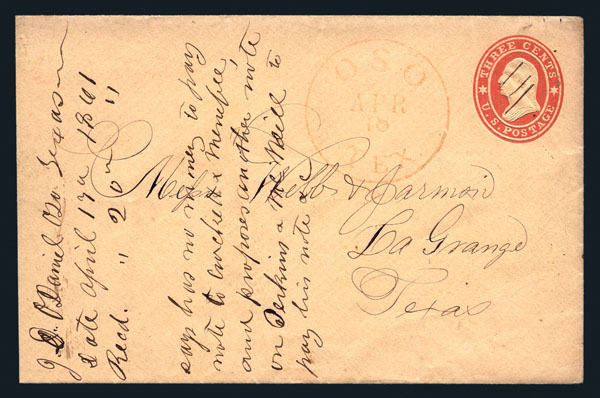 J. D. O'Daniel Oso Texas
date April 17th 1861
Recd. " 20th "
says has no money to pay
note to Crockett & Menefee,
and proposes another note
on Perkins & McNeill to
pay his note &c
OSO
APR
18
TEX
THREE CENTS
U.S. POSTAGE
Messrs Webb & Jarmon
La Grange
Texas